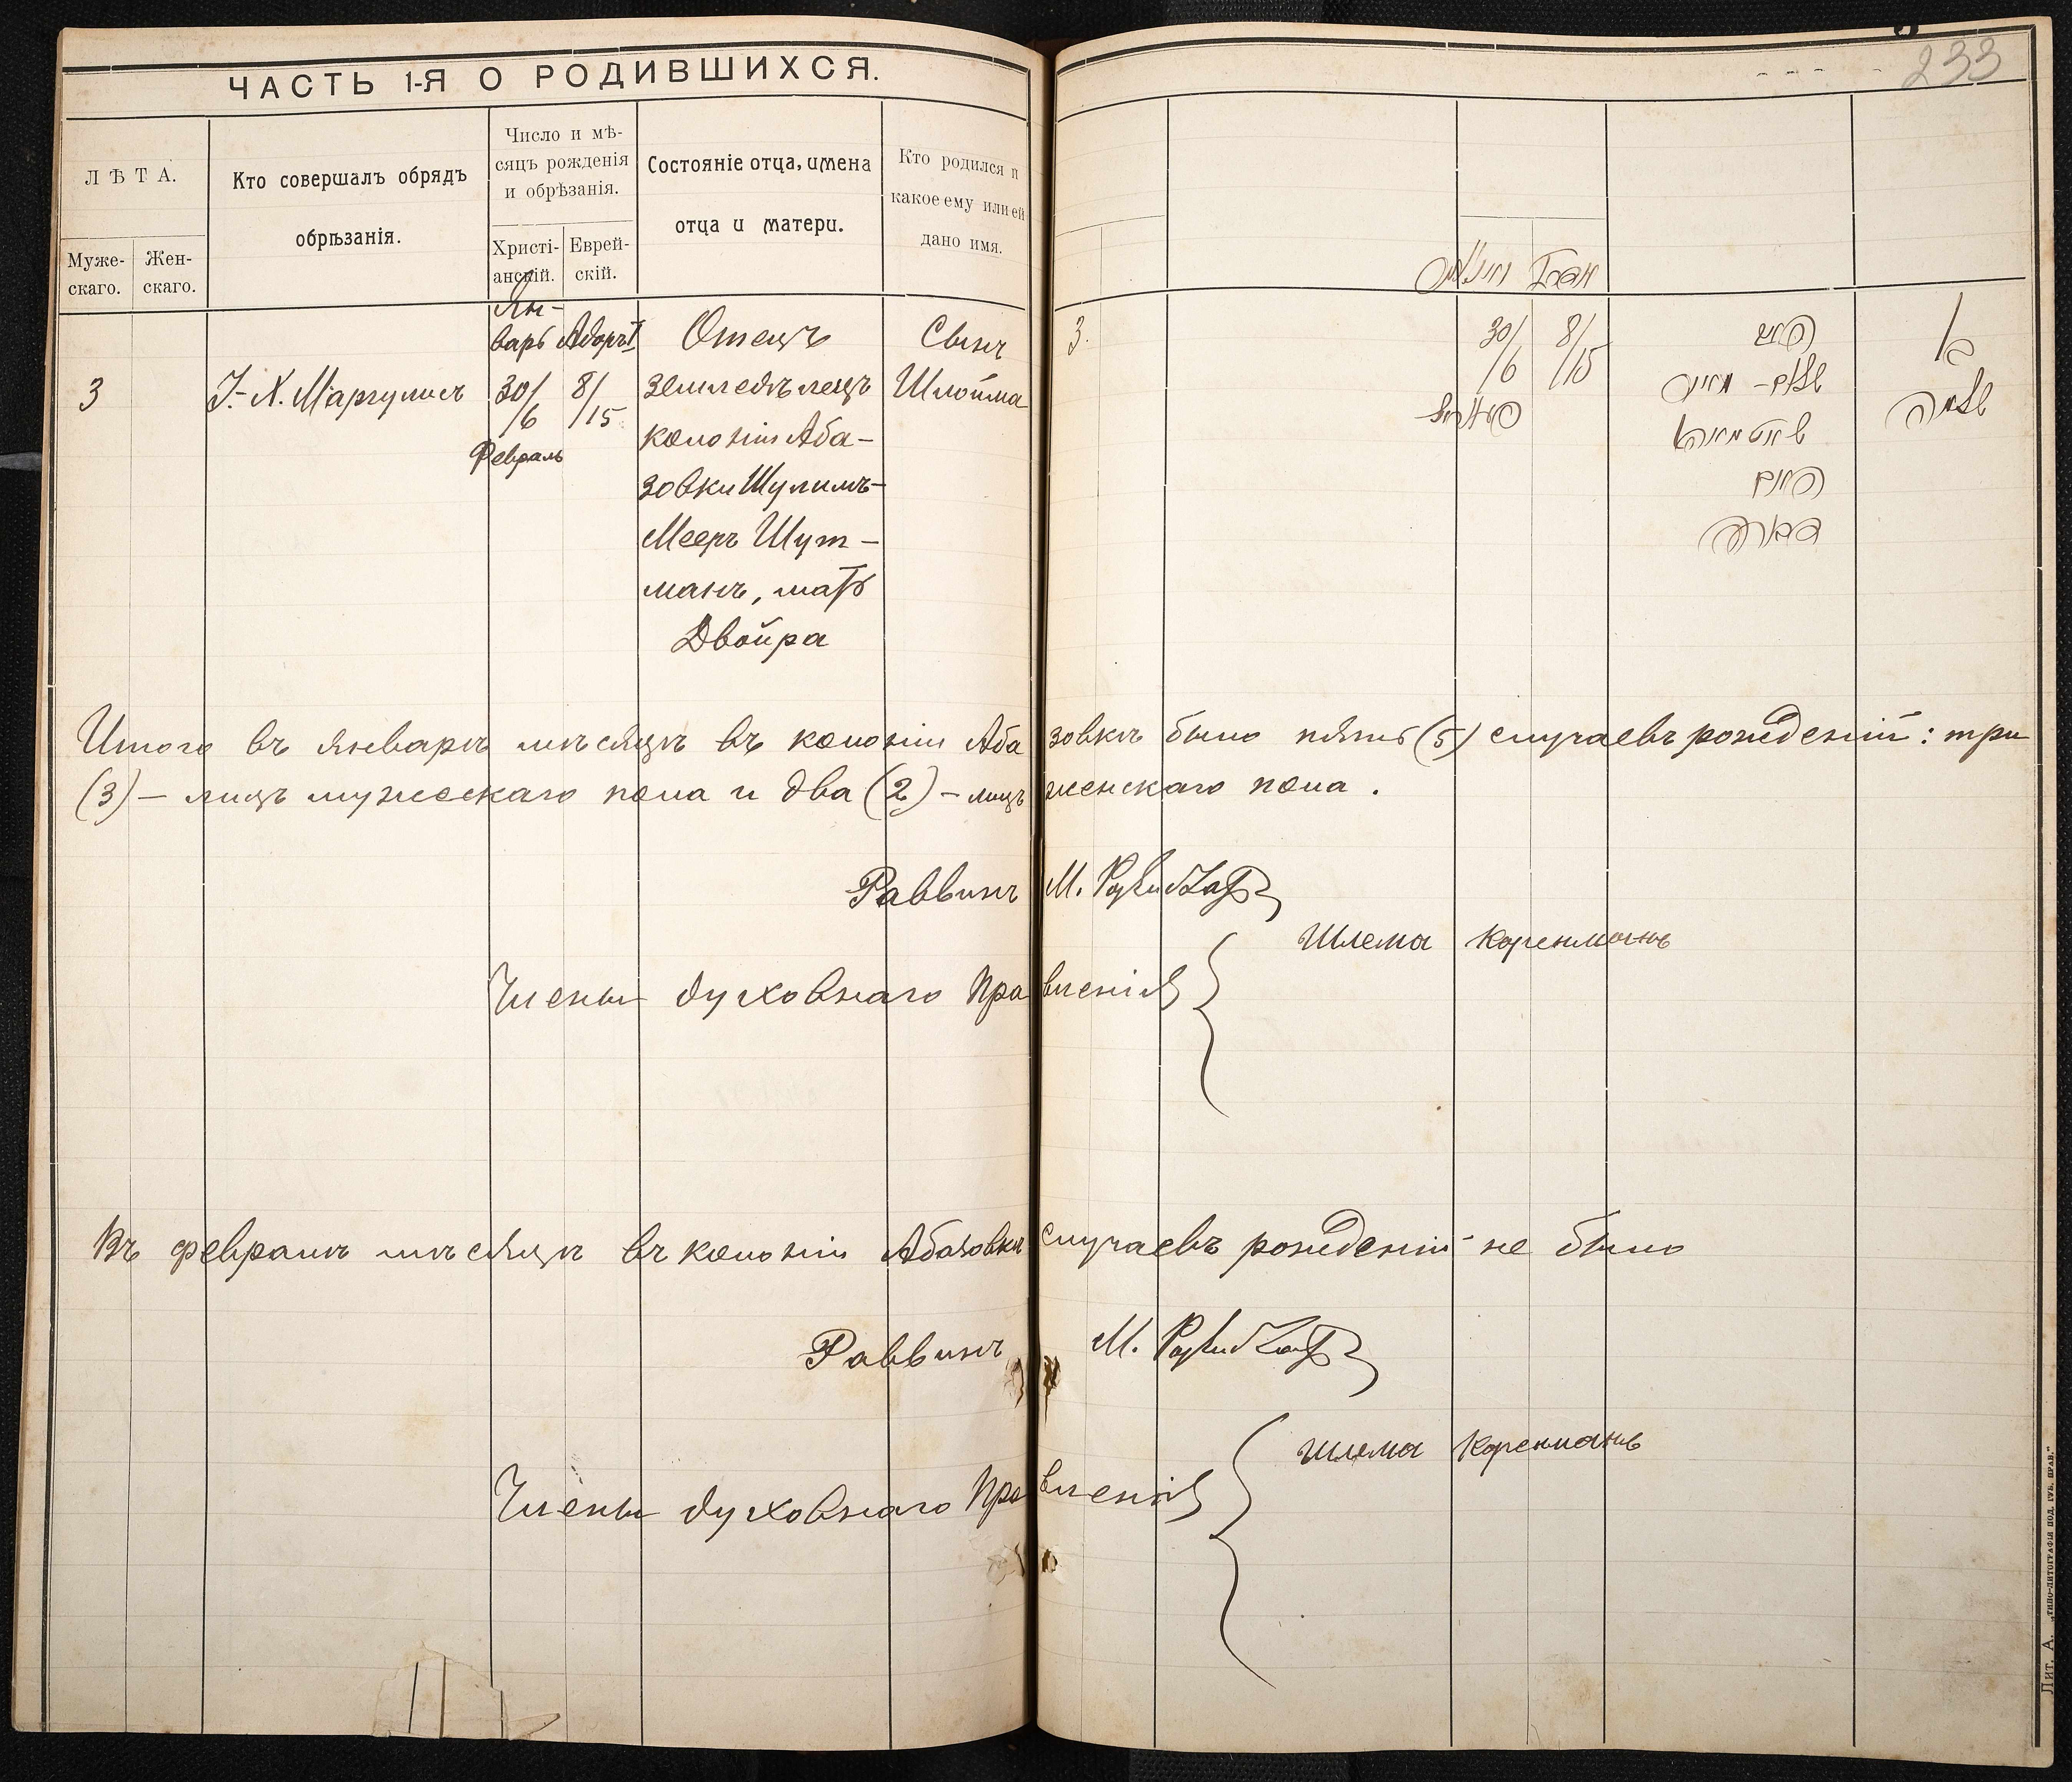 ЧАСТЬ 1-Я О РОДИВШИХСЯ.
233
ЛѢТА.
Муже-
скаго.
Жен-
скаго.
Кто совершалъ обрядъ
обрѣзанія.
Число и мѣ-
сяцъ рожденія
и обрѣзанія.
Христі-
анскій.
Еврей-
скій.
Состояніе отца, имена
отца и матери.
Кто родился и
какое ему или ей
дано имя.
3
І.-Х. Маргулисъ
Ян-
варь
30/6
Февраль
Адаръ I
8/15
Отецъ
земледѣлецъ
колоніи Аба-
зовки Шулимъ-
Мееръ Шут-
манъ, мать
Двойра
Сынъ
Шлойма
3.
30/6
8/15
Итого въ январѣ мѣсяцѣ въ колоніи Абазовкѣ было пять (5) случаевъ рожденій: три
(3) – лицъ мужескаго пола и два (2) – лицъ женскаго пола.
Раввинъ М.
Шлема Коренманъ
Члены духовнаго Правленія
Въ февралѣ мѣсяцѣ въ колоніи Абазовкѣ случаевъ рожденій не было
Раввинъ М.
Шлема Коренманъ
Члены духовнаго Правленія
Лит. А. „ТИПО-ЛИТОГРАФІЯ ПОД. ГУБ. ПРАВ."